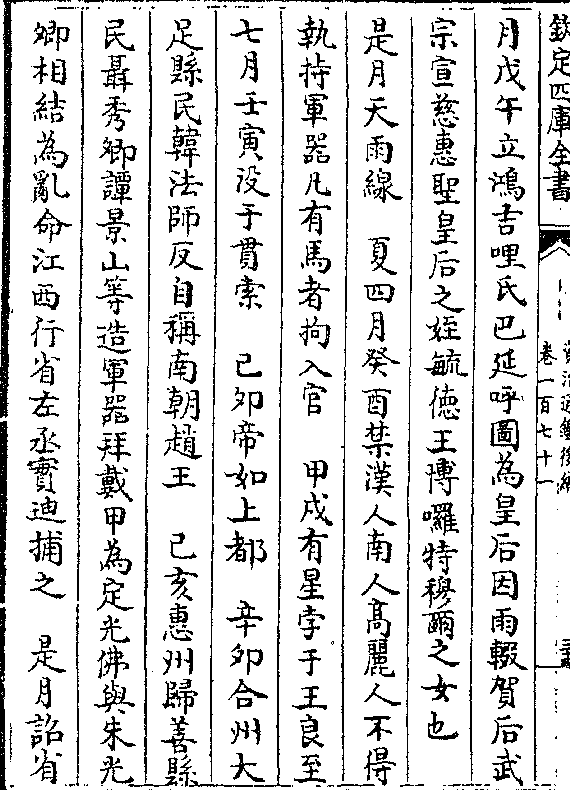 欽定四庫全書
資治通鑑後編
卷一百七十一
月戊午立鴻吉哩氏巴延呼圖為皇后因雨輟賀后武
宗宣慈惠聖皇后之姪毓德王博囉特穆爾之女也
是月天雨線　夏四月癸酉禁漢人南人髙麗人不得
執持軍器凡有馬者拘入官　甲戌有星孛于王良至
七月壬寅没于貫索　己夘帝如上都　辛夘合州大
足縣民韓法師反自稱南朝趙王　己亥惠州歸善縣
民聶秀卿譚景山等造軍器拜戴甲為定光佛與朱光
卿相結為亂命江西行省左丞實迪捕之　是月詔省